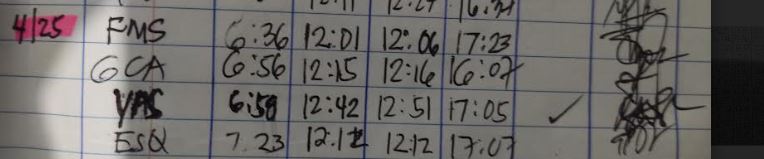 4/25 FMS 6:36 12:01 12:06 17:23
GCA 6:56 12:15 12:16 16:07
YAS 6:58 12:42 12:51 17:05 ✓
ESQ 7.23 12:12 12:12 17:07